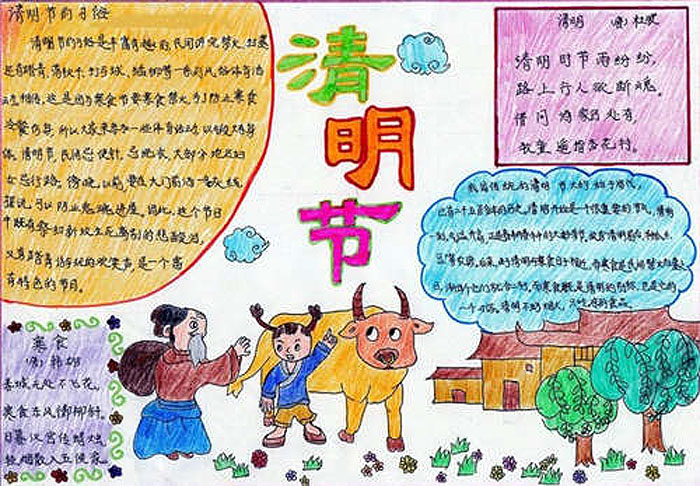 清明节的习俗
清明节的习俗是丰富有趣的,民间讲究禁火、扫墓
还有踏青、荡秋千、打马球、插柳等一系列风俗体育活
动。相传,这是因为寒食节要寒食禁火,为了防止寒食
冷餐伤身,所以大家来参加一些体育活动,以锻炼身
体。清明节,民间忌使针,忌洗衣,大部分地区妇
女忌行路。傍晚以前,要在大门前洒一条灰线,
据说可以防止鬼魂进屋。因此,这个节日
中既有祭扫新坟生死离别的悲酸泪,
又有踏青游玩的欢笑声,是一个富
有特色的节日。
清
明
节
清明 (唐)杜牧
清明时节雨纷纷,
路上行人欲断魂。
借问酒家何处有,
牧童遥指杏花村。
我国传统的清明节大约始于周代,
已有二千五百多年的历史。清明开始是一个很重要的节气,清明
一到,气温升高,正是春耕春种的大好时节,故有清明前后,种瓜点
豆
一个习俗,清明不动烟火,只吃凉的食品。
寒食
(唐)韩翃
春城无处不飞花,
寒食东风御柳斜。
日暮汉宫传蜡烛,
轻烟散入五侯家。